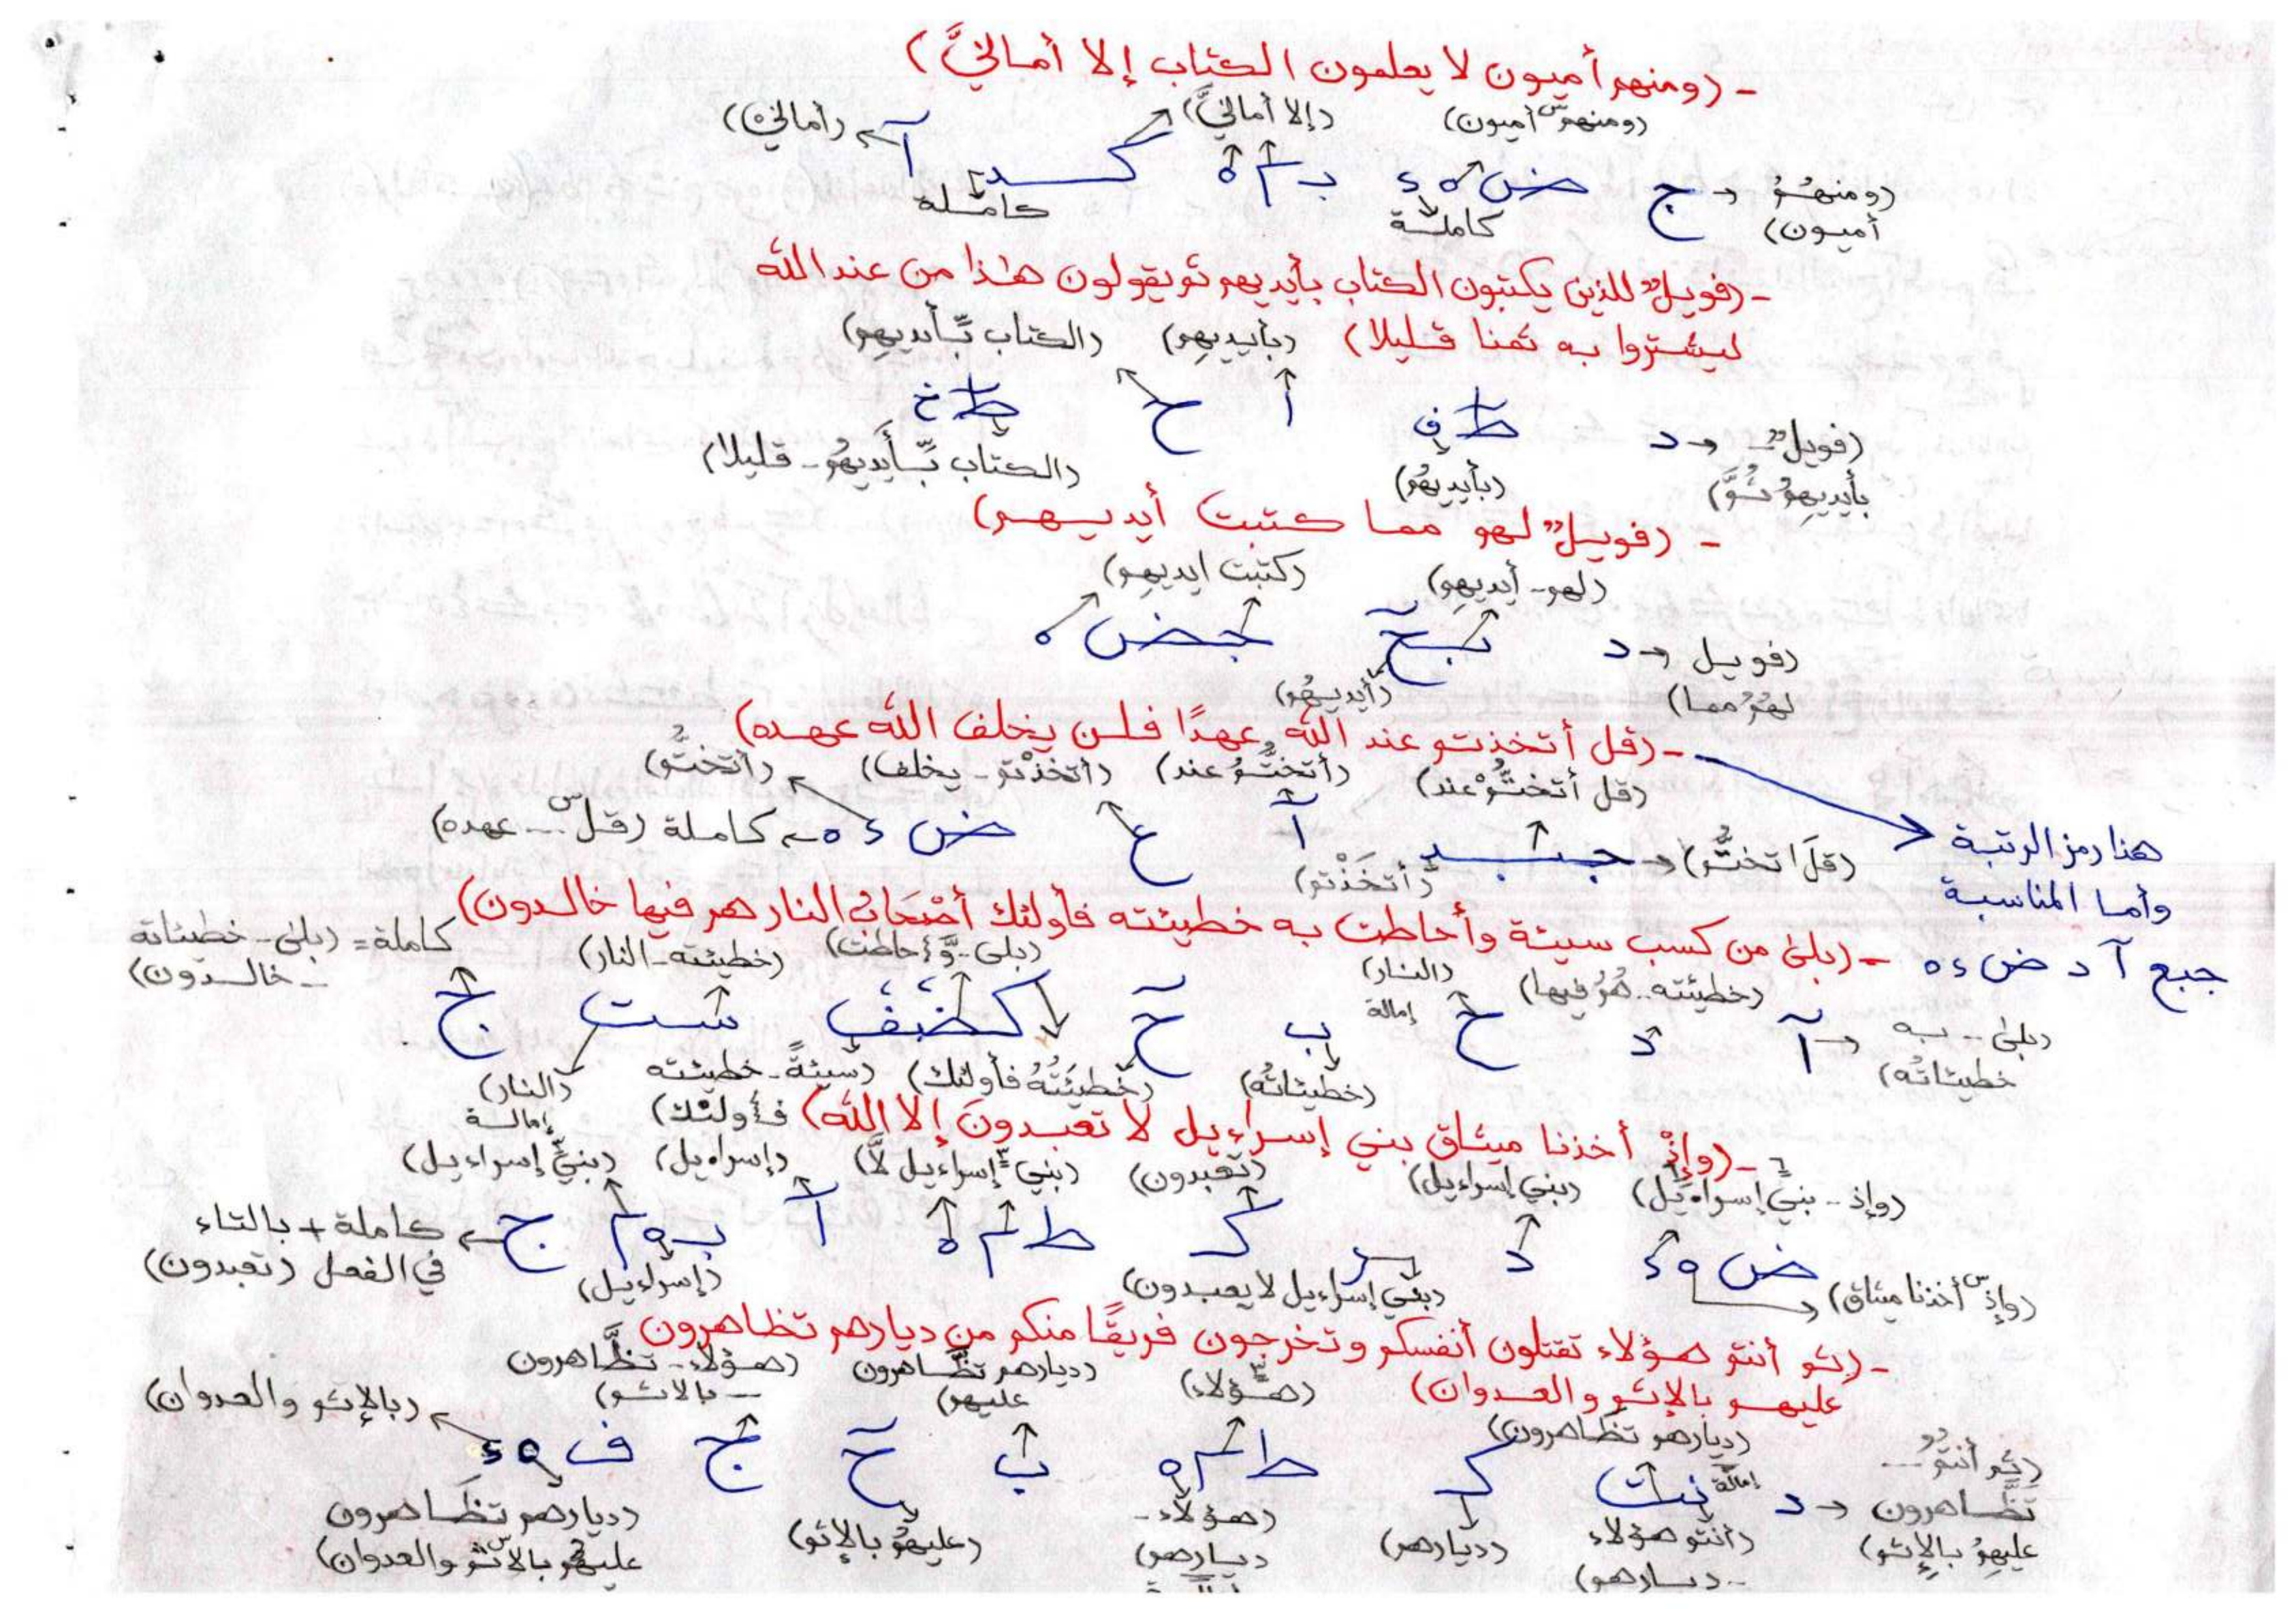 - (ومنهم أميون لا يعلمون الكتاب إلا أمانيَّ)
(ومنهمس أميون) (إلا أمانيَّ) (أمانيْ)
(ومنهمُ أميون) ← ج ضـ ه ء د م ه كـ آ
كاملة كاملة
- (فويلٌ للذين يكتبون الكتاب بأيديهم ثم يقولون هٰذا من عند الله
ليشتروا به ثمنا قليلا) (بأييديهم) (الكتاب بِّأيديهم)
(فويلٌ - بأيديهمُ ثُمَّ) ← د ط ف أ ح ط خ
(بأييديهم) (الكتاب بِّأيديهم - قليلا)
- (فويلٌ لهم مما كتبت أيديهم)
(لهم - أيديهم) (كتبت ايديهم)
(فويل لهمُ مما) ← د جضـ ه
(أيديهم)
- (قل أتخذتم عند الله عهدًا فلن يخلف الله عهده)
(قل أتختُّم عند) (أتختُّم عند) (أتخذْتم - يخلف) (أتختُّم)
(قلَ اتختُّم) ← آ ع ضـ ء ه ← كاملة (قلس ... عهده)
(أتخَذْتم)
هنا رمز الرتبة
وأما المناسبة
جبع آ د ضـ ء ه
- (بلىٰ من كسب سيئة وأحاطت به خطيئته فأولئك أصْحَابُ النار هم فيها خالدون)
(خطيئته .. همُ فيها) (النار) إمالة (بلى - وَّأحاطت) (خطيئته - النار) كاملة = (بلىٰ - خطيئاته - خالدون)
(بلىٰ .. به خطيئاتُه) ← آ د خ ب ح كضغف شت ج
(خطيئاتُه) (خطيئَتُهُ فأولئك) (سيئةً - خطيئته فأولئك) (النار) إمالة
- (وإذْ أخذنا ميثاق بني إسراءيل لا تعبدونَ إلا الله)
(وإذ - بني إسراءيل) (بني إسراءيل) (تعبدون) (بني إسراءيل لا) (إسراءيل) (بني إسراءيل)
(وإذس أخذنا ميثاق) ضـ ه ء د كـ ط م ه آ ج ← كاملة + بالتاء في الفعل (تعبدون)
(بني إسراءيل لا يعبدون) (إسراءيل)
- (ثم أنتم هؤلاء تقتلون أنفسكم وتخرجون فريقًا منكم من ديارهم تظاهرون
عليهم بالإثم والعدوان) (هؤلاء) (ديارهم تظَّاهرون عليهم) (هؤلاء - تظَّاهرون - بالاثم) (بالإثم والعدوان)
(ديارهم تظَاهرون)
(ثم أنتمُ ... تظَّاهرون عليهمُ بالإثم) ← د إمالة كـ ط م ه ب ح ج ف ه ء
(أنتم هؤلاء - ديارهم) (ديارهم) (هؤلاء - ديارهم) (عليهمُ بالإثم) (ديارهم تظَاهرون عليهم بالاثم والعدوان)